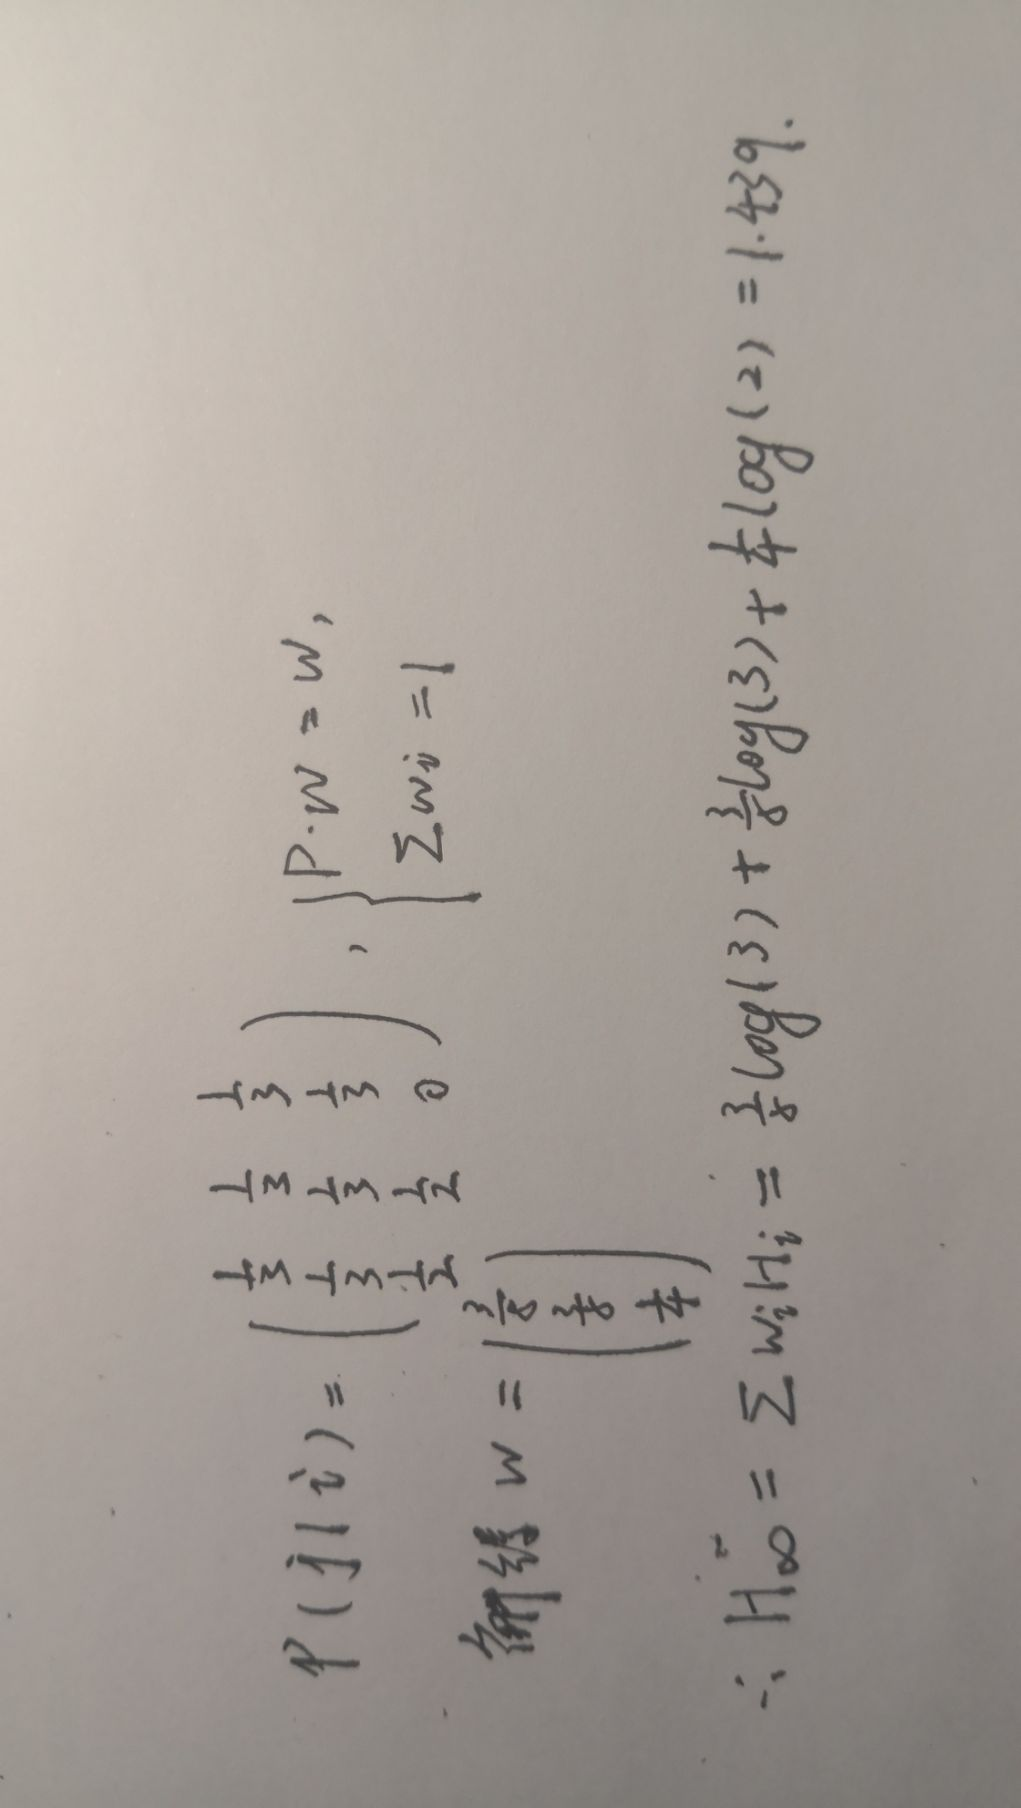 P(j|i) = ( 1/3 1/3 1/3
1/3 1/3 1/3
1/2 1/2 0 ) , { P·W = W,
Σwi = 1
W = ( 3/8
3/8
1/4 )
∴ H∞ = Σ wiHi = 3/8 log(3) + 3/8 log(3) + 1/4 log(2) = 1.439.